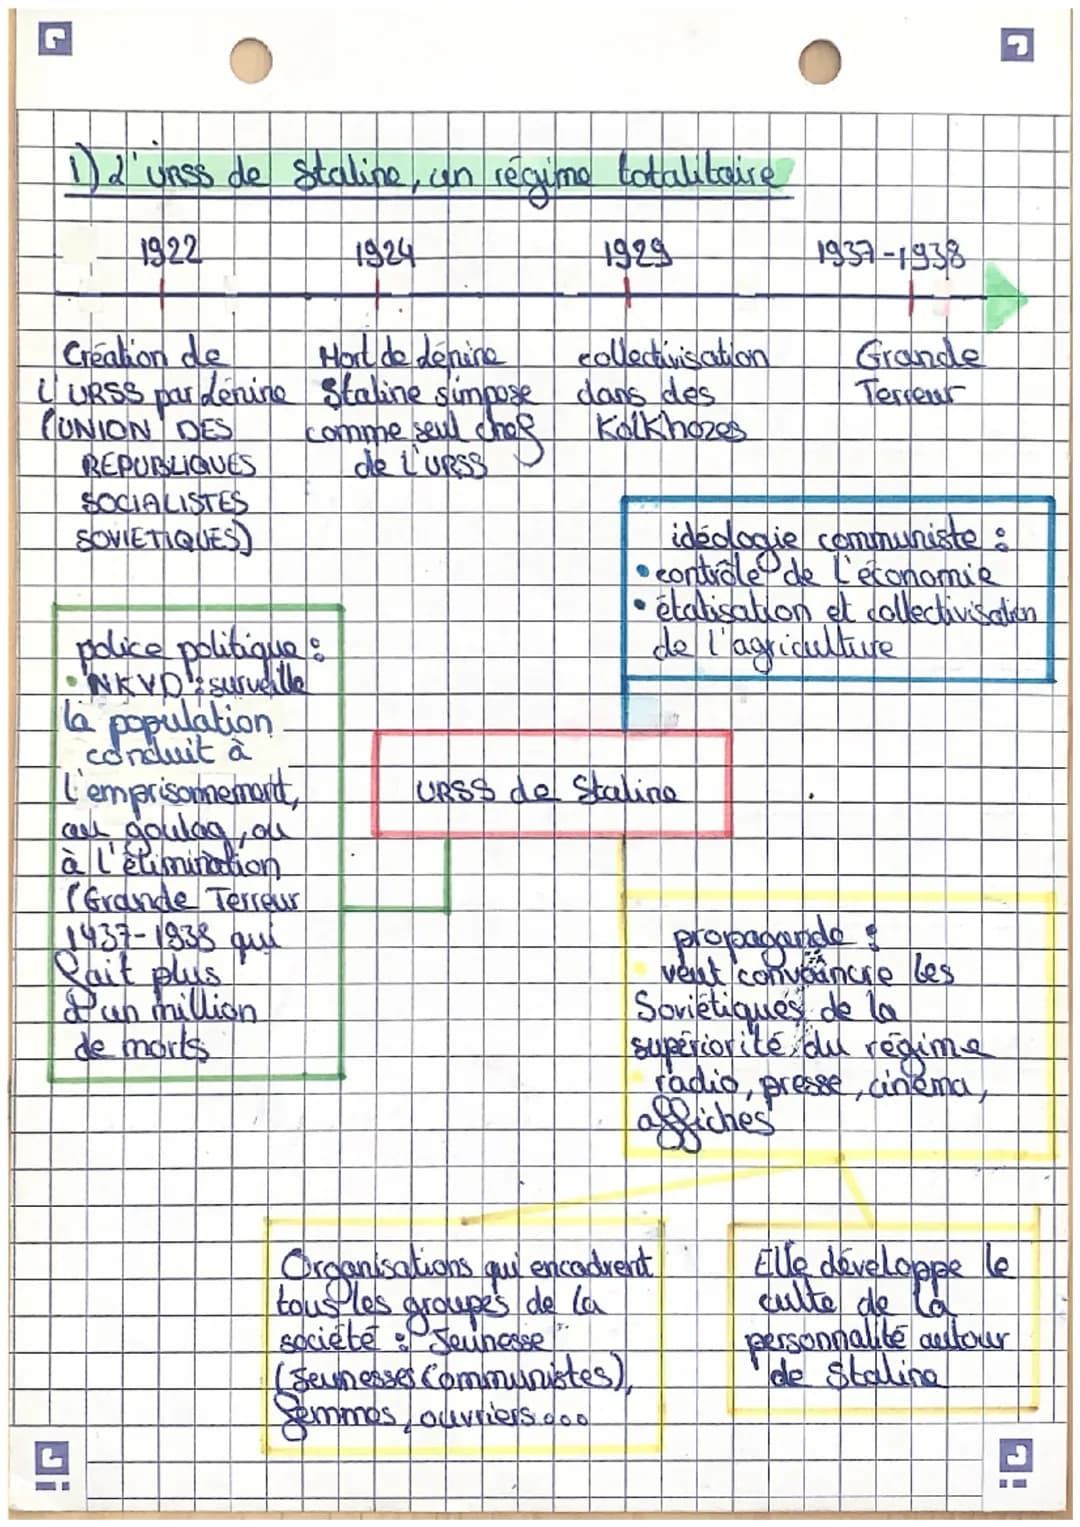 1) L'URSS de Staline, un régime totalitaire
1922
1924
1929
1937-1938
Création de
L'URSS par Lénine
(UNION DES
REPUBLIQUES
SOCIALISTES
SOVIETIQUES)
Mort de Lénine
Staline s'impose
comme seul chef
de L'URSS
collectivisation
dans des
Kolkhozes
Grande
Terreur
idéologie communiste :
• contrôle de l'économie
• étatisation et collectivisation
de l'agriculture
police politique :
• NKVD : surveille
la population
conduit à
l'emprisonnement,
au goulag, ou
à l'élimination
(Grande Terreur
1937-1938 qui
fait plus
d'un million
de morts
URSS de Staline
propagande :
• veut convaincre les
Soviétiques de la
supériorité du régime
• radio, presse, cinéma,
affiches
Organisations qui encadrent
tous les groupes de la
société : Jeunesse
(Jeunesses Communistes),
femmes, ouvriers...
Elle développe le
culte de la
personnalité autour
de Staline